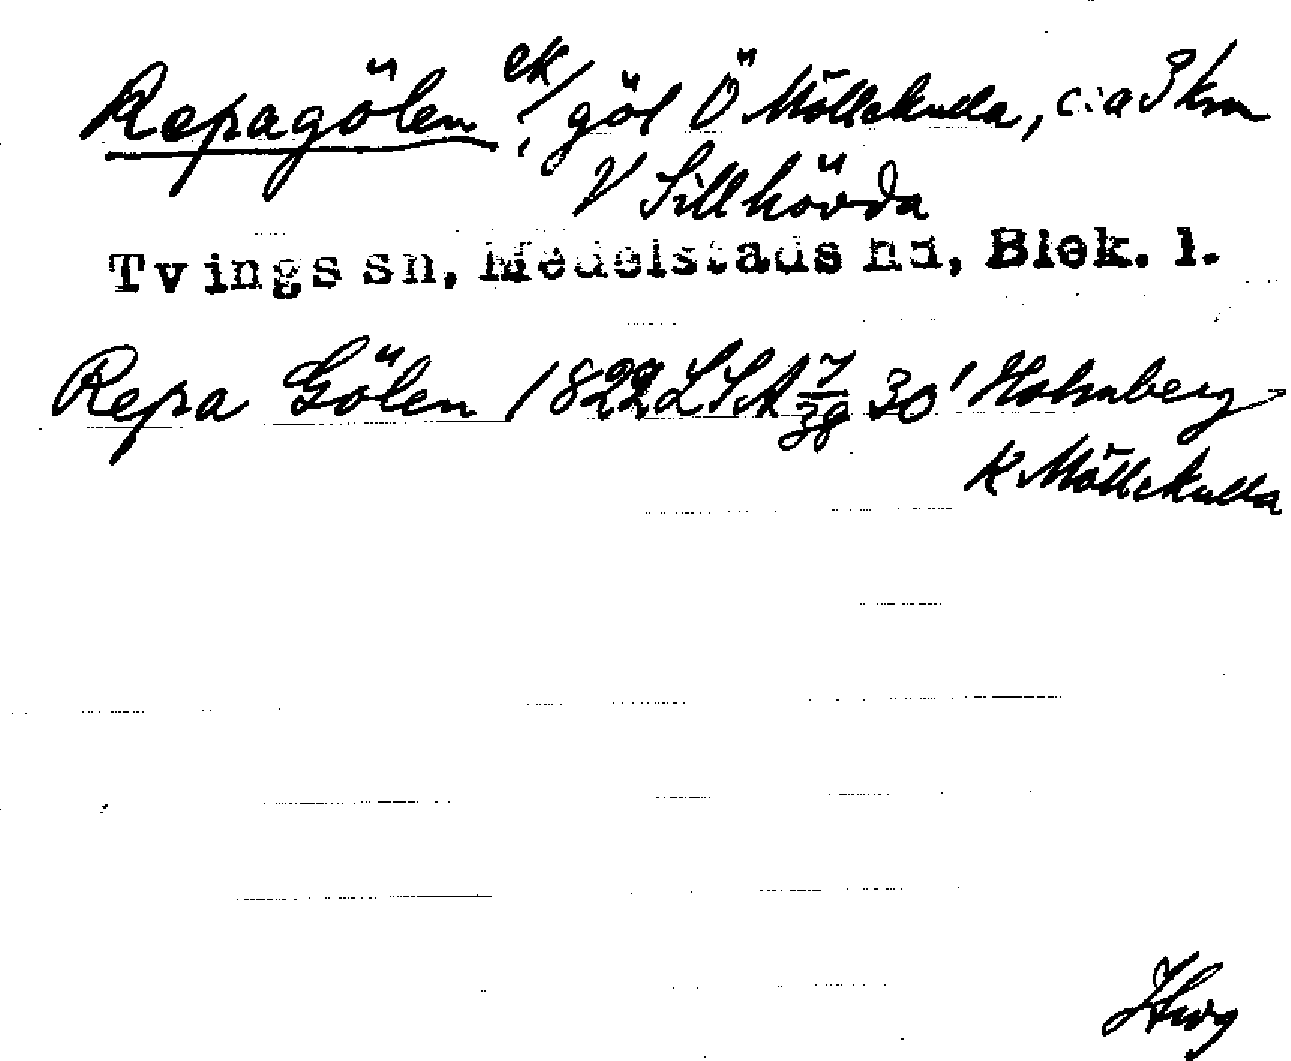 Repagölen ek/ göl Ö Möllekulla, c:a 3 km
V Sillhövda
Tvings sn, Medelstads hd, Blek. l.
Repa Gölen 1822 LSA 30' Holmberg
K Möllekulla